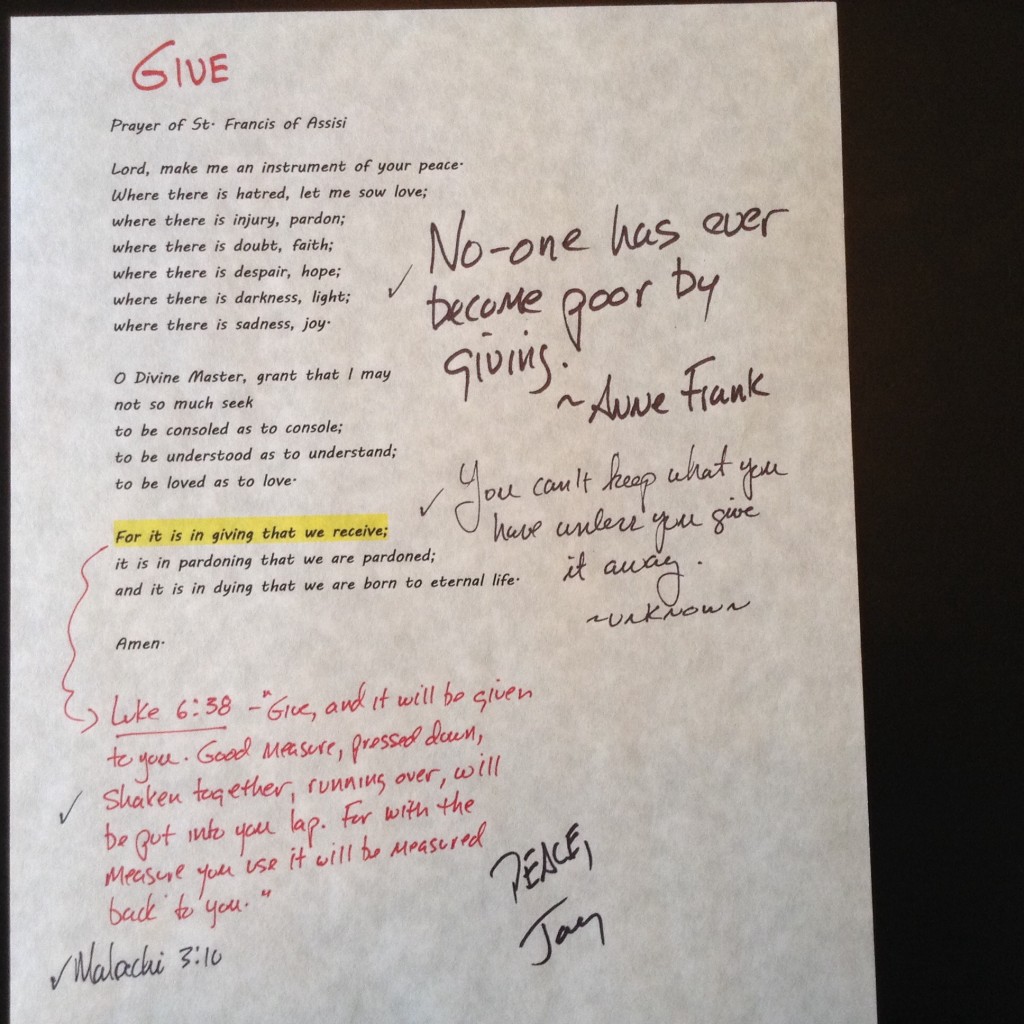 GIVE
Prayer of St. Francis of Assisi
Lord, make me an instrument of your peace.
Where there is hatred, let me sow love;
where there is injury, pardon;
where there is doubt, faith;
where there is despair, hope;
where there is darkness, light;
where there is sadness, joy.
O Divine Master, grant that I may
not so much seek
to be consoled as to console;
to be understood as to understand;
to be loved as to love.
For it is in giving that we receive;
it is in pardoning that we are pardoned;
and it is in dying that we are born to eternal life.
Amen.
✓ No-one has ever
become poor by
giving.
~ Anne Frank
✓ You can't keep what you
have unless you give
it away.
~unknown
Luke 6:38 - "Give, and it will be given
to you. Good measure, pressed down,
✓ shaken together, running over, will
be put into you lap. For with the
measure you use it will be measured
back to you."
✓ Malachi 3:10
PEACE,
Jay